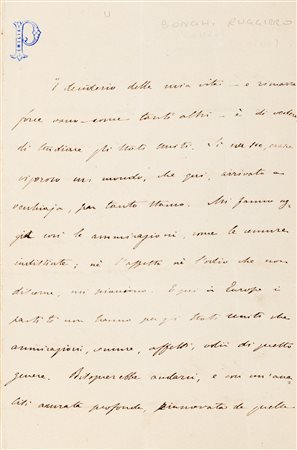 P
BONGHI RUGGIERO
Il desiderio della mia vita – e rimarrà
forse vano – come tanti altri – è di vedere
di studiare gli Stati Uniti. Si
vigoroso un mondo, che qui, arrivato a
vecchiaja, par tanto stanco. Mi fanno
così le ammirazioni, come le censure
indistinte; nè l'affetto nè l'odio che non
discerne, mi piacciono. E qui in Europa i
partiti non hanno per gli Stati Uniti che
ammirazioni, censure, affetti, odii di questo
genere. Bisognerebbe andarci, e con un'ana
lisi accurata profonda, rinnovata da quella